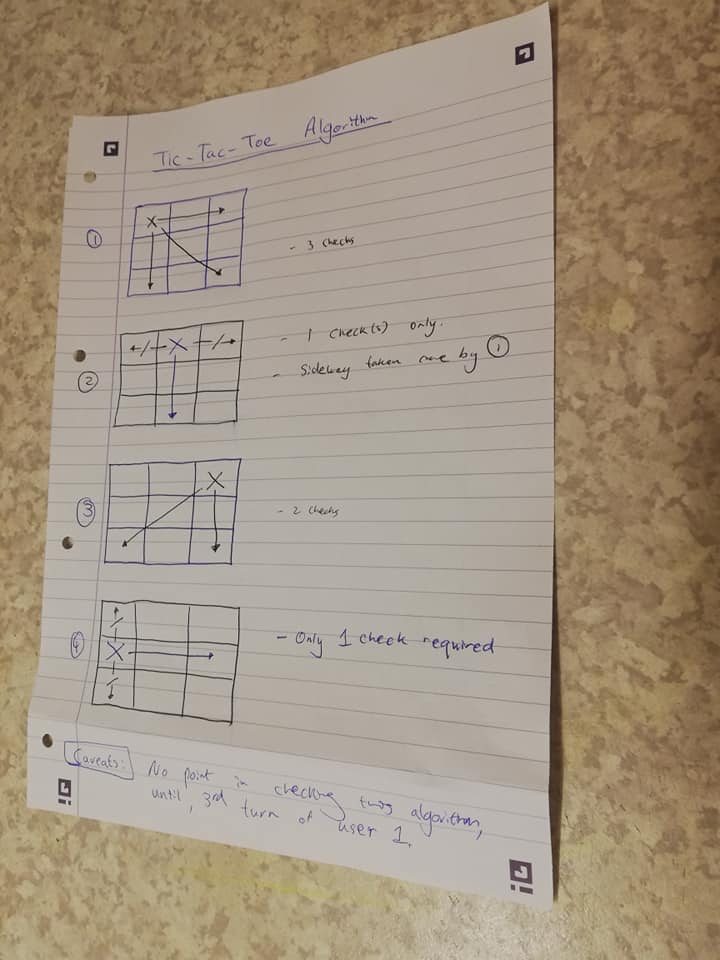 Tic-Tac-Toe Algorithm
1
X
- 3 checks
2
X
- 1 check(s) only.
- Sideway taken care by 1
3
X
- 2 checks
4
X
- Only 1 check required
Caveats: No point in checking this algorithm,
until, 3rd turn of user 1.